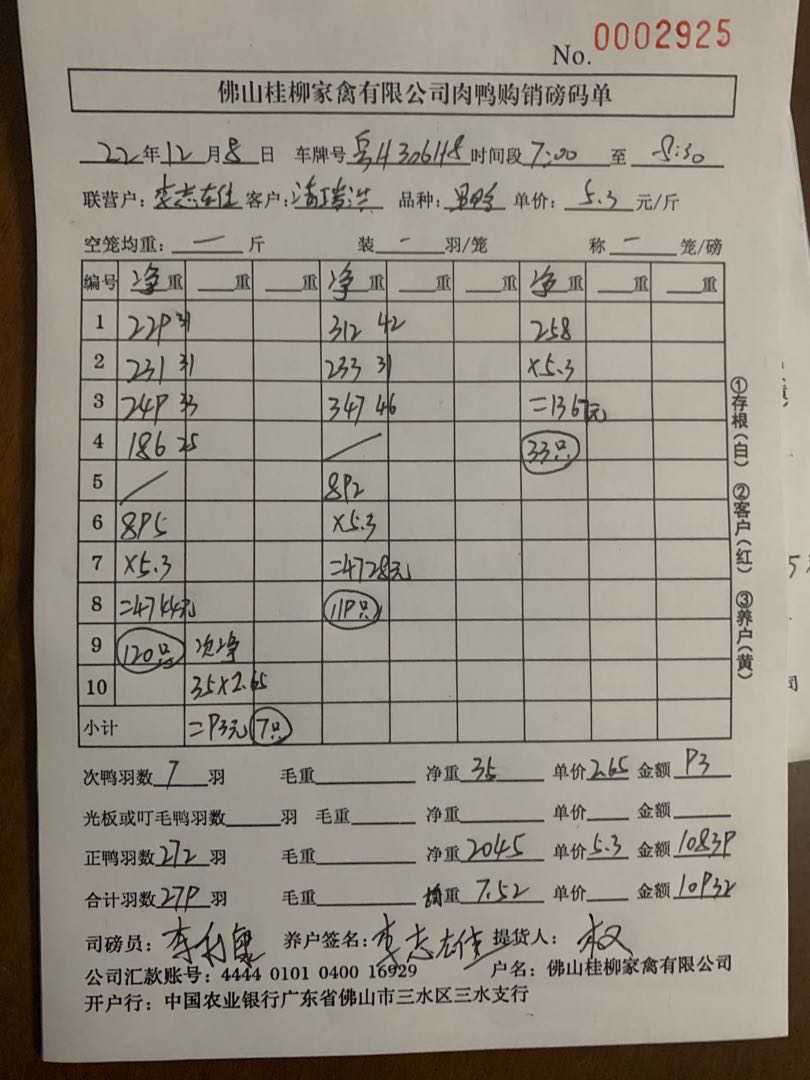 No. 0002925
佛山桂柳家禽有限公司肉鸭购销磅码单
22年12月8日 车牌号粤H306H8时间段7:00至8:30
联营户:李志左佳 客户: 品种: 单价:5.3元/斤
空笼均重:一斤 装一羽/笼 称一笼/磅
编号 净重 重 重 净重 重 重 净重 重 重
1 229 31 312 42 258
2 231 31 233 31 ×5.3
3 249 33 347 46 =1367元
4 186 25 / 33只
5 / 892
6 895 ×5.3
7 ×5.3 =4728元
8 =4744元 119只
9 120只 次净
10 35×2.65
小计 =93元 7只
次鸭羽数7羽 毛重 净重35 单价2.65 金额93
光板或叮毛鸭羽数 羽 毛重 净重 单价 金额
正鸭羽数272羽 毛重 净重2045 单价5.3 金额10839
合计羽数279羽 毛重 均重7.52 单价 金额10932
司磅员: 养户签名:李志左佳 提货人:
公司汇款账号:4444 0101 0400 16929 户名:佛山桂柳家禽有限公司
开户行:中国农业银行广东省佛山市三水区三水支行
①存根(白) ②客户(红) ③养户(黄)